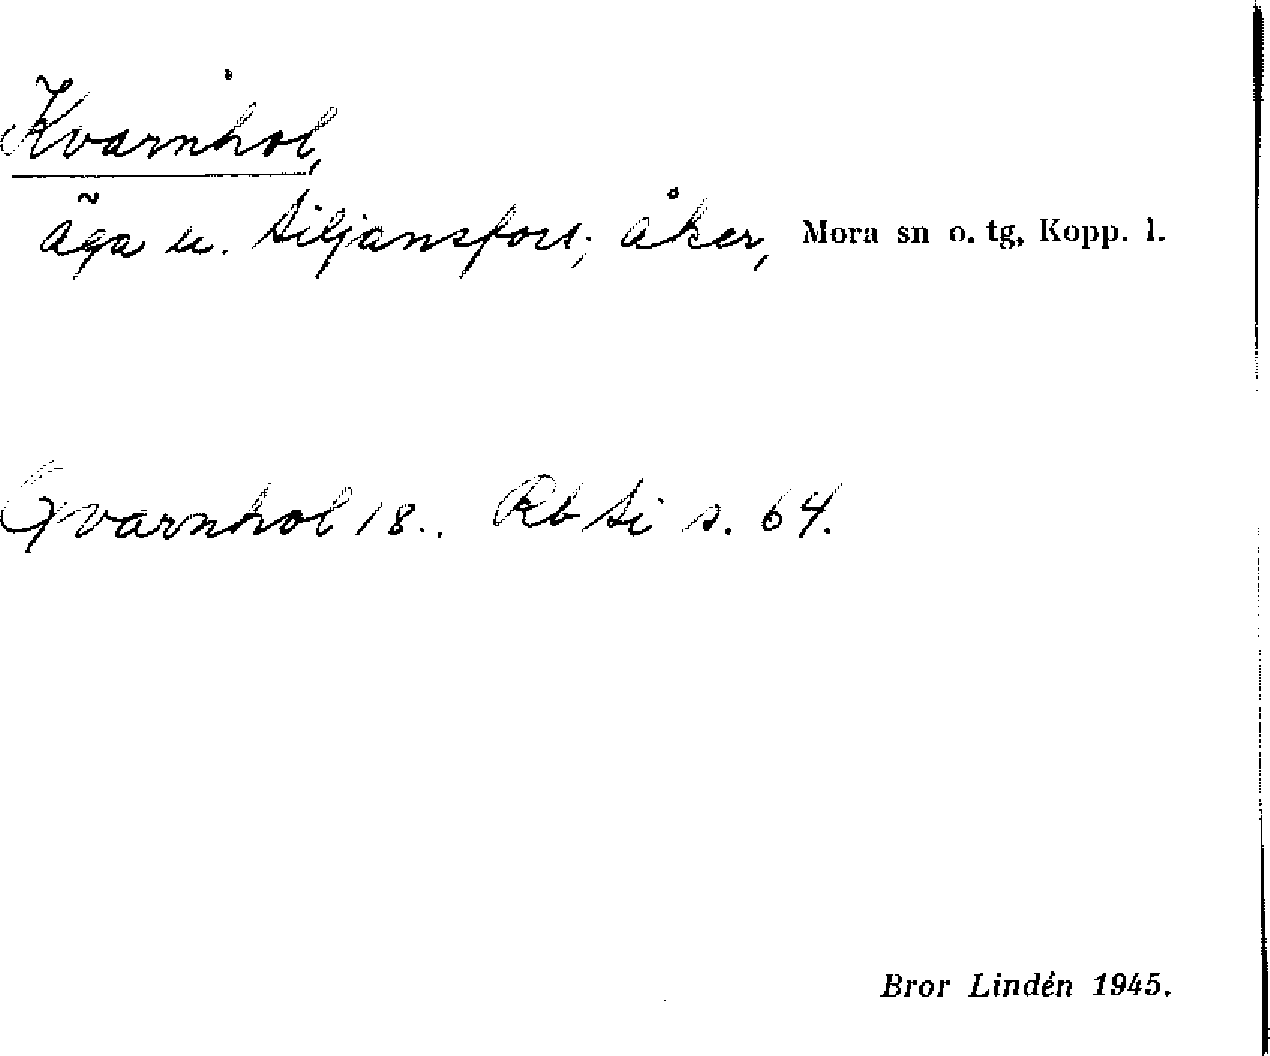 Kvarnhol,
äga u. Siljansfors; åker, Mora sn o. tg, Kopp. l.
Qvarnhol 18.. Rb Si s. 64.
Bror Lindén 1945.